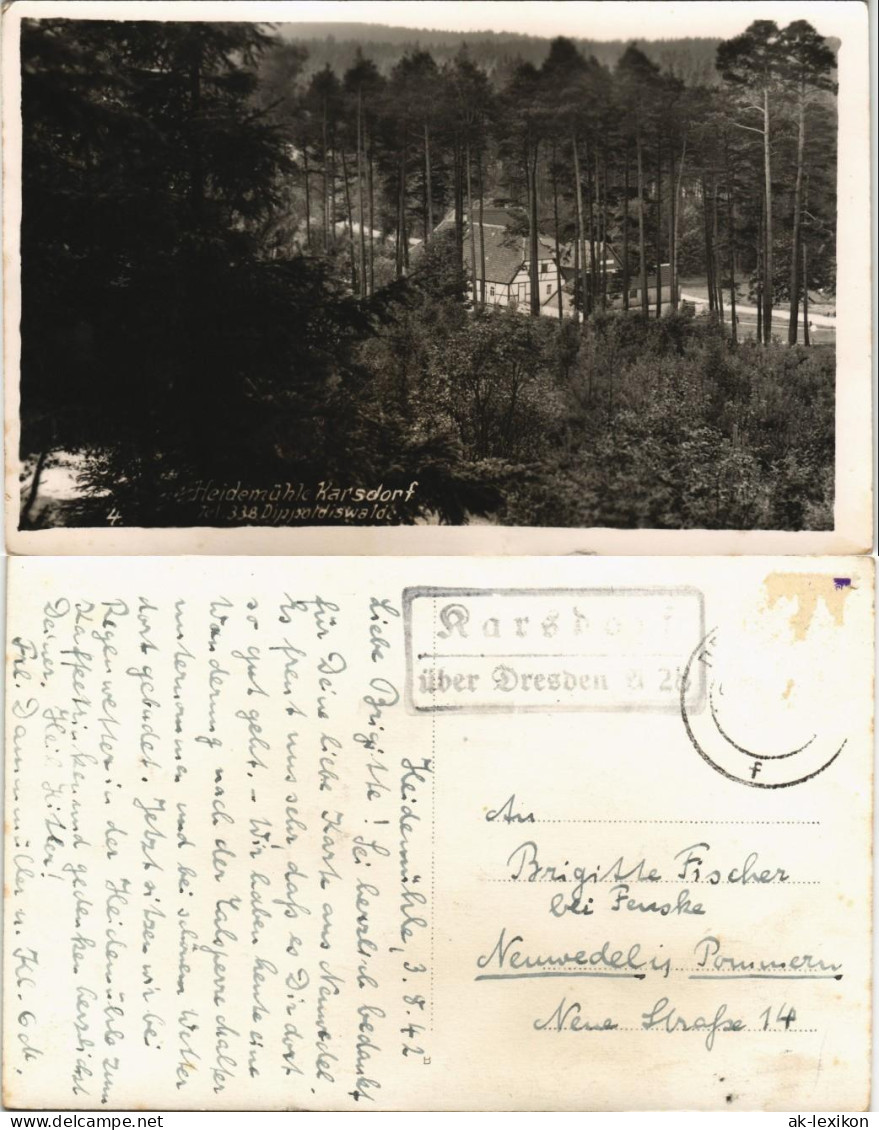 Heidemühle Karsdorf
4. Tel. 338 Dippoldiswalde
Karsdorf
über Dresden A 28
f
Heidemühle, 3. 8. 42
Liebe Brigitte! Sei herzlich bedankt
für Deine liebe Karte aus Neuwedel.
Es freut uns sehr daß es Dir dort
so gut geht. - Wir haben heute eine
Wanderung nach der Talsperre Malter
unternommen und bei schönem Wetter
dort gebadet. Jetzt sitzen wir bei
Regenwetter in der Heidemühle zum
Kaffeetrinken und gedenken herzlichst
Deiner. Heil Hitler!
Frl. Dammmüller u. Kl. 6 M.
An
Brigitte Fischer
bei Fenske
Neuwedel i/ Pommern
Neue Straße 14
ak-lexikon